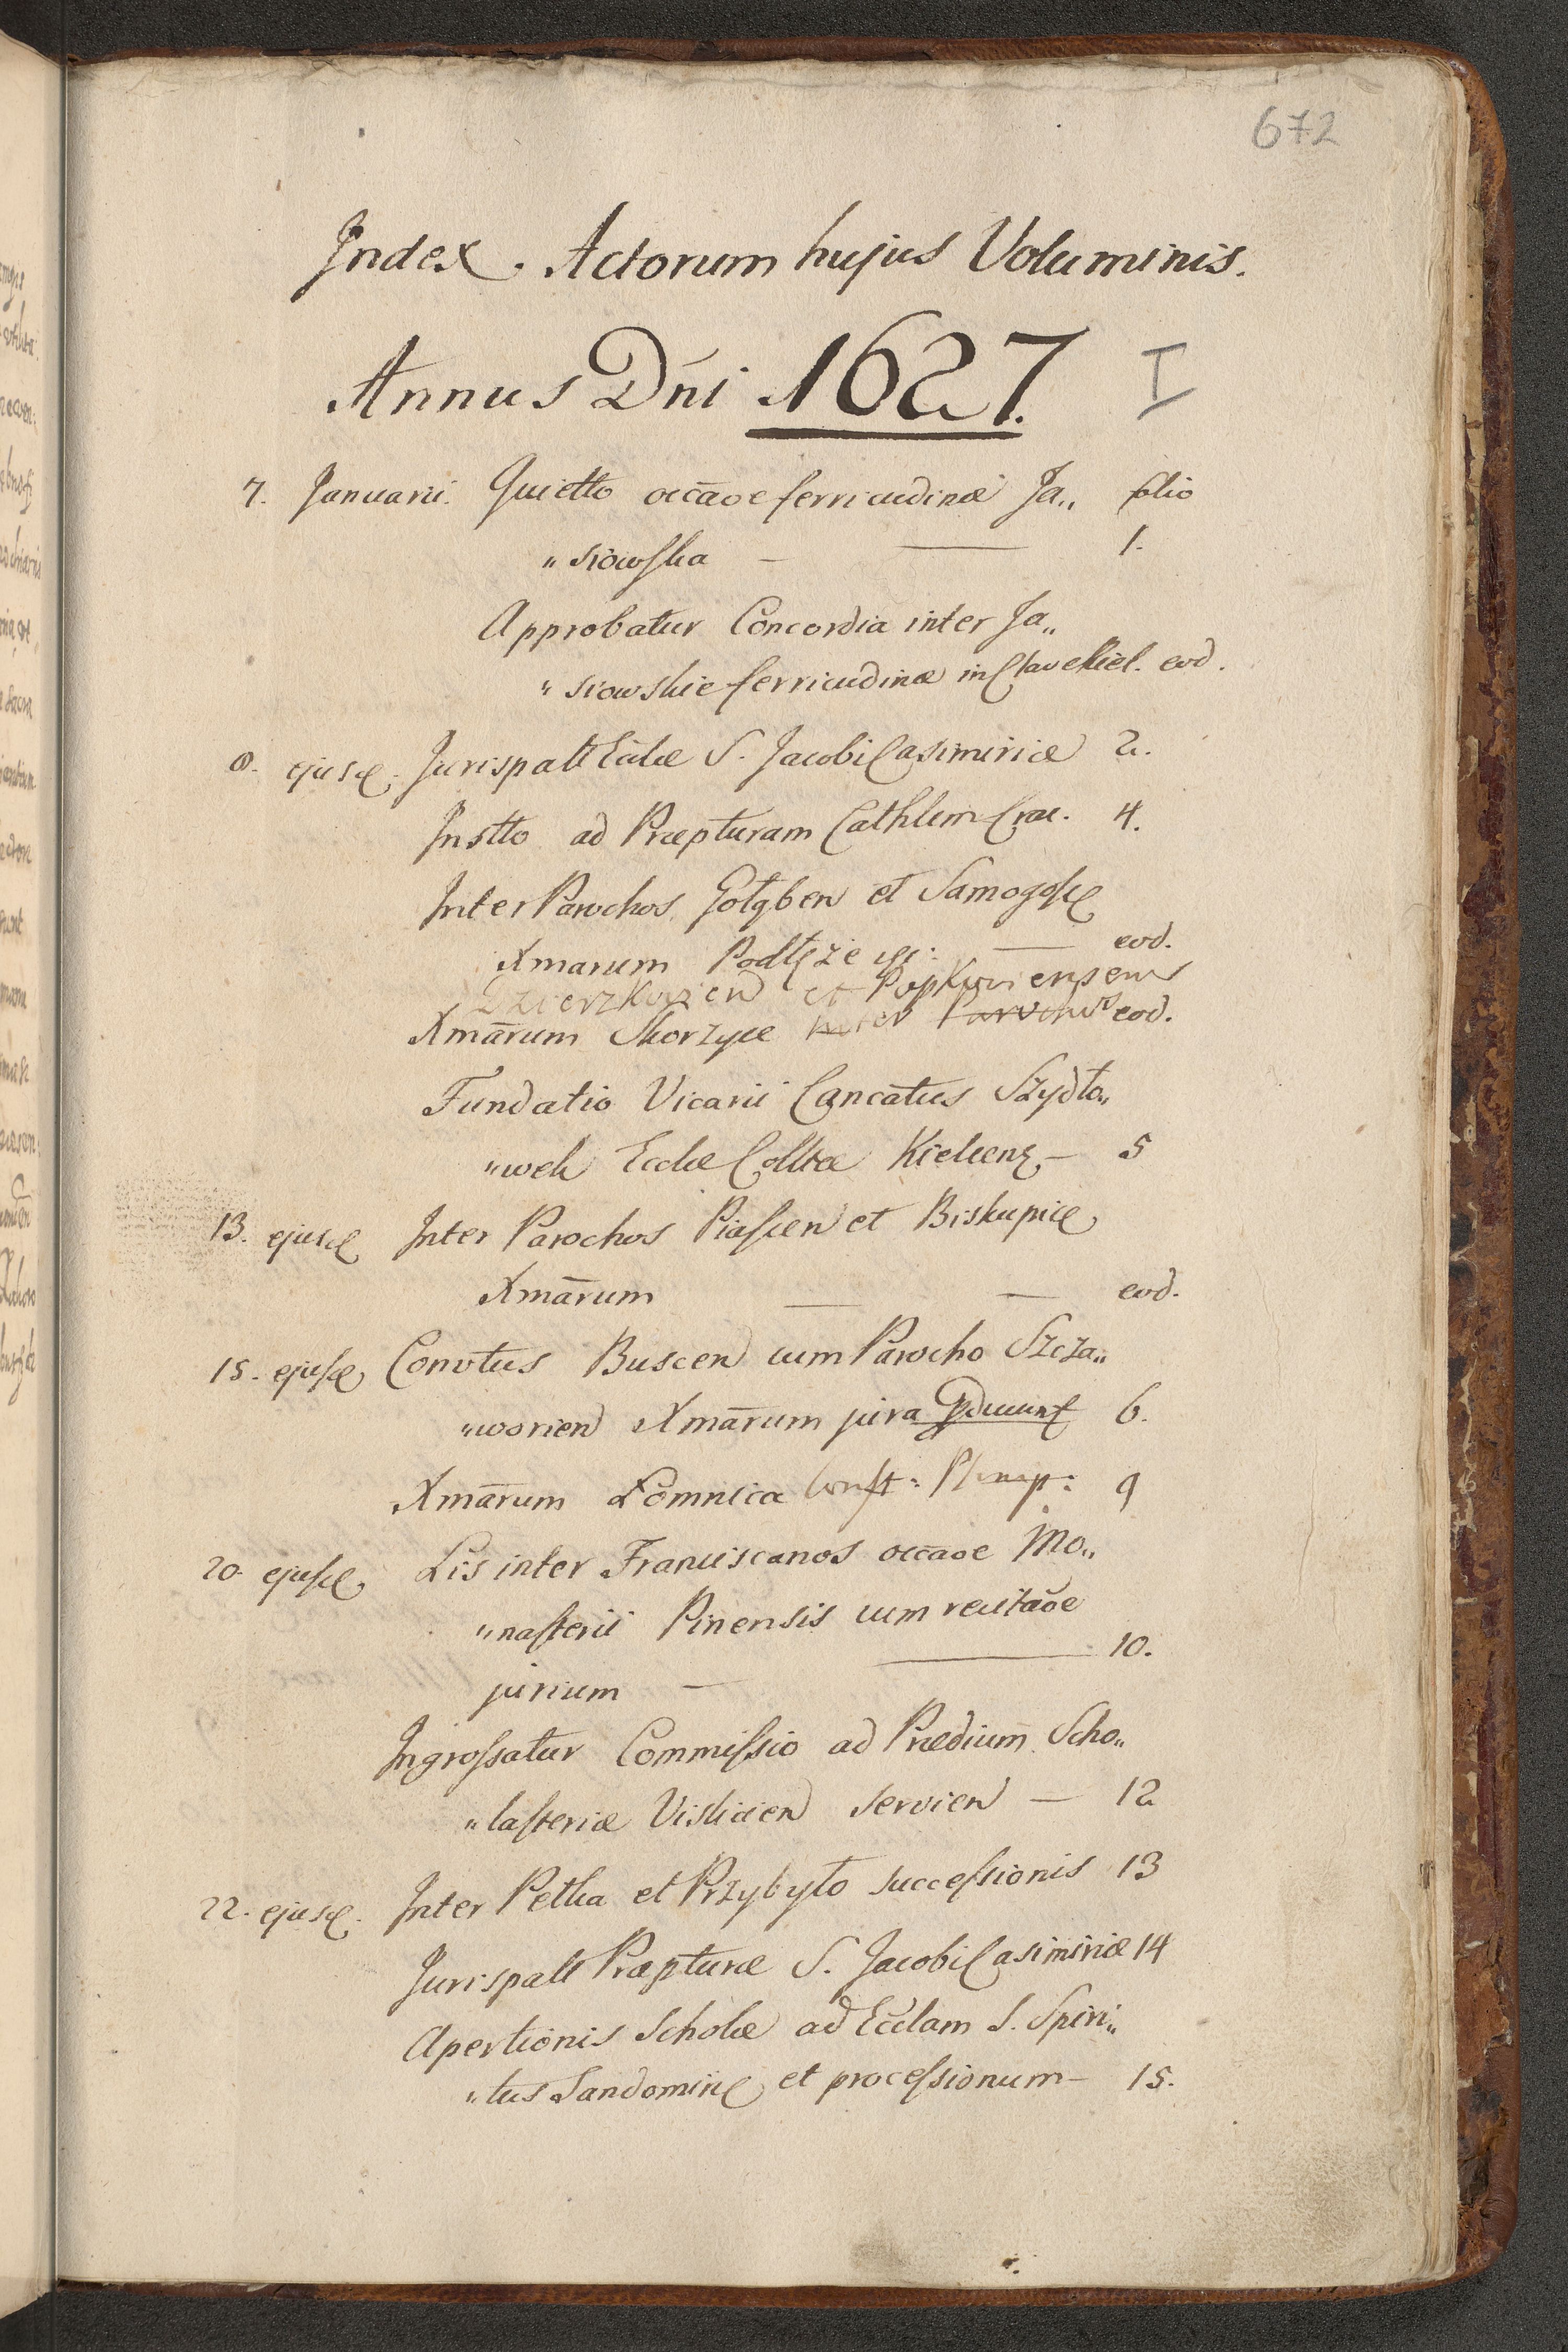 672
Index Actorum hujus Voluminis.
Annus Dni 1627. I
7. Januarii. Quietto occãoe ferricudinæ Ja„ folio
„siowska — — 1.
Approbatur Concordia inter Ja„
„siowskie ferricudinæ in Clave Kiel. eod.
8. ejusd. Jurispatt Eccłæ S. Jacobi Casimiriæ 2.
Instto ad Præpturam Cathlem Crac. 4.
Inter Parochos Gołąben et Samogosc
Xmarum Podłęże — eod.
Dzierzkovien et Popkoviensem
Xmãrum Skorzyce inter Parochos eod.
Fundatio Vicarii Cancatus Szydło„
„wek Eccłæ Colltæ Kielcen — 5
13. ejusd Inter Parochos Piascen et Biskupice
Xmãrum — — eod.
15. ejusd Convtus Buscen cum Parocho Szcza„
„worien Xmãrum jura 6.
Xmãrum Łomnica 9
20. ejusd Lis inter Franciscanos occãoe Mo„
„nasterii Pinensis cum recitãoe
jurium — — 10.
Ingrossatur Commissio ad Prædium Scho„
„lasteriæ Vislicien servien — 12
22. ejusd. Inter Petka et Przybyło successionis 13
Jurispatt Præpturæ S. Jacobi Casimiriæ 14
Apertionis Scholæ ad Eccłam S. Spiri„
„tus Sandomiriæ et processionum — 15.